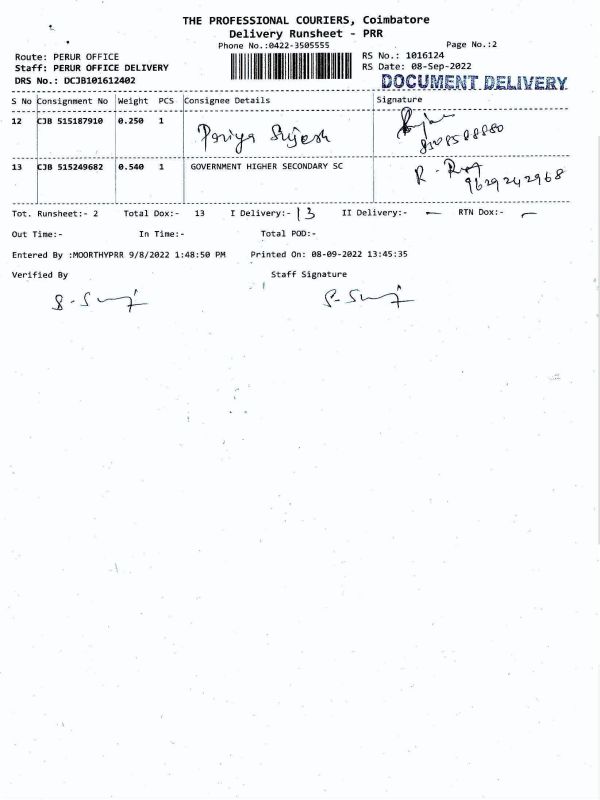 THE PROFESSIONAL COURIERS, Coimbatore
Delivery Runsheet - PRR
Phone No.:0422-3505555 Page No.:2
Route: PERUR OFFICE RS No.: 1016124
Staff: PERUR OFFICE DELIVERY RS Date: 08-Sep-2022
DRS No.: DCJB101612402 DOCUMENT DELIVERY
S No Consignment No Weight PCS Consignee Details Signature
12 CJB 515187910 0.250 1 Priya
13 CJB 515249682 0.540 1 GOVERNMENT HIGHER SECONDARY SC
9629242968
Tot. Runsheet:- 2 Total Dox:- 13 I Delivery:- 13 II Delivery:- — RTN Dox:- —
Out Time:- In Time:- Total POD:-
Entered By :MOORTHYPRR 9/8/2022 1:48:50 PM Printed On: 08-09-2022 13:45:35
Verified By Staff Signature